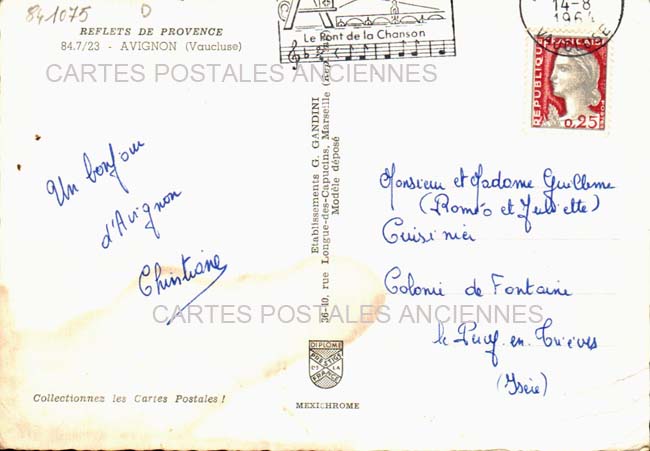 841075 D
REFLETS DE PROVENCE
84.7/23 - AVIGNON (Vaucluse)
Le Pont de la Chanson
14-8
196
VAUCLUSE
REPUBLIQUE FRANÇAISE
POSTES
0,25
CARTES POSTALES ANCIENNES
Un bonjour
d'Avignon
Christiane
Etablissements G. GANDINI
36-40, rue Longue-des-Capucins, Marseille
Modèle déposé
Monsieur et Madame Guillerme
(Roméo et Juliette)
Cuisinier
Colonie de Fontaine
le Percy-en-Trièves
(Isère)
CARTES POSTALES ANCIENNES
DIPLOME
PRESTIGE
DE LA
FRANCE
MEXICHROME
Collectionnez les Cartes Postales !